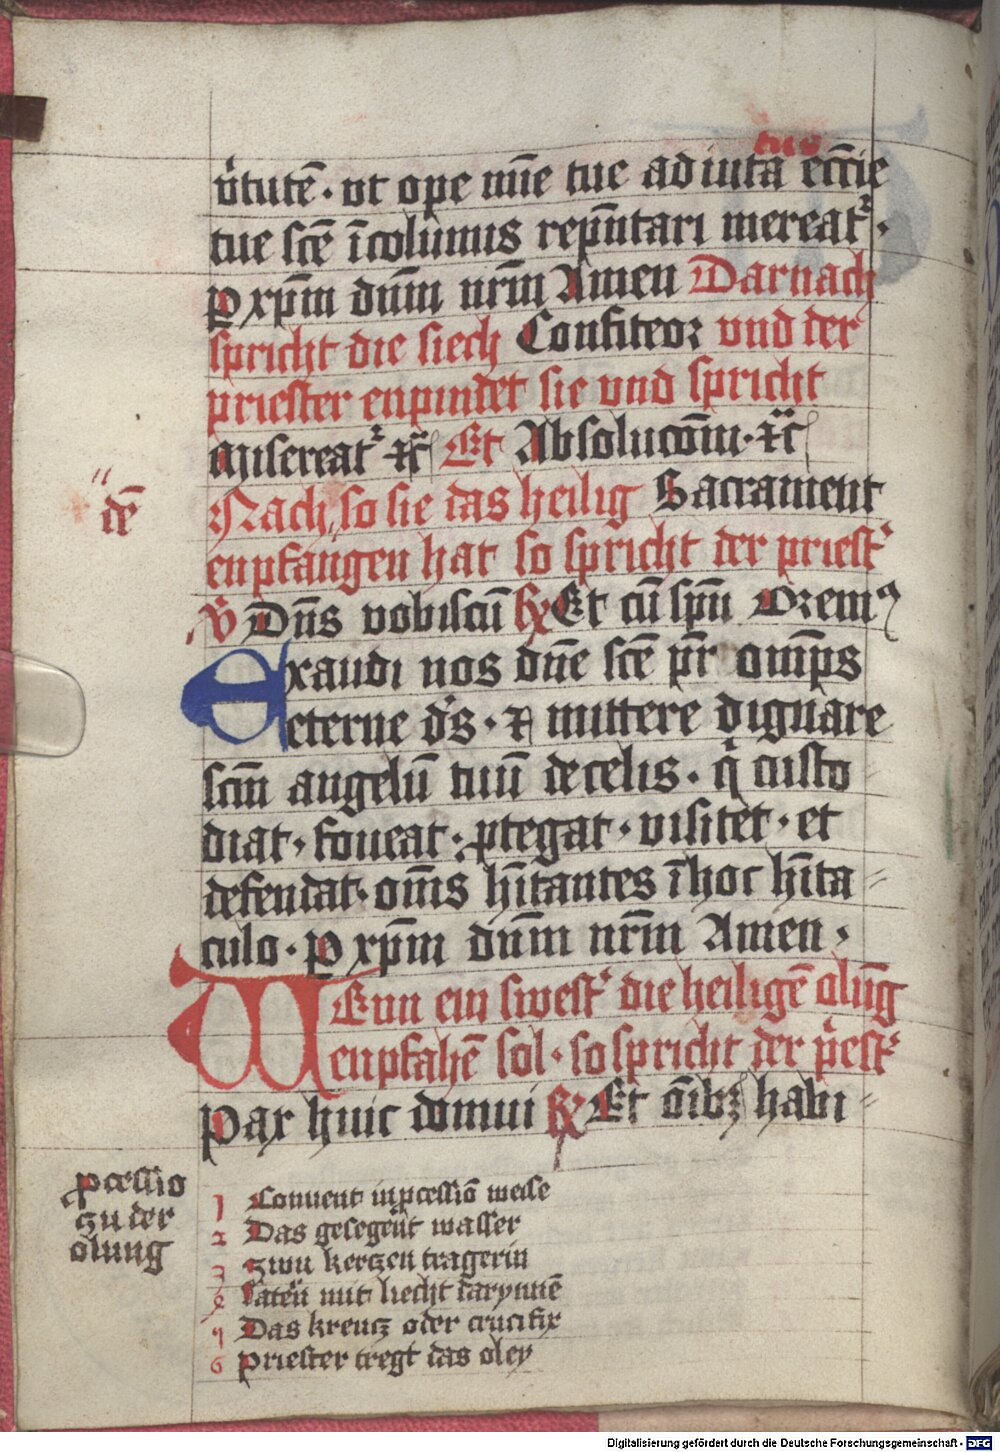 tuo
v̉tutē · vt ope mīe tue ad iuta ecc̄ie
tue sc̄e īcolumis rep̄ntari mereat᷑ ·
ꝑ xp̄m dn̄m nr̄m Amen Darnach
spricht die siech Confiteor vnd der
priester enpindet sie vnd spricht
Misereat᷑ ⁊c̄ Et Absoluc̄om · ⁊c̄
Nach so sie das heilig Sacrament
dē
enpfangen hat so spricht der priest᷑
V̄ Dn̄s vobiscū ℟ Et cū sp̄u Orem⁹
Exaudi nos dn̄e sc̄e pr̄ om̄ps
eterne ds̄ · ⁊ mittere dignare
scm̄ angelū tuū de celis · q̇ custo
diat · foueat · ꝓtegat · visitet · et
defendat · om̄s hītantes ī hoc hīta
culo · ꝑ xp̄m dn̄m nr̄m Amen ·
Wenn ein swest᷑ die heiligē olūg
enpfahē sol · so spricht der p̉est᷑
Pax huic domui ℟ Et oībꝫ habi
ꝓcessio
zu der
olung
1 Convent in ꝓcessiō weise
2 Das gesegēt wasser
3 Zwu kertzen tragerin
4 Laterū mit liecht darynnē
5 Das kreutz oder crucifix
6 Priester tregt das oley
Digitalisierung gefördert durch die Deutsche Forschungsgemeinschaft - DFG